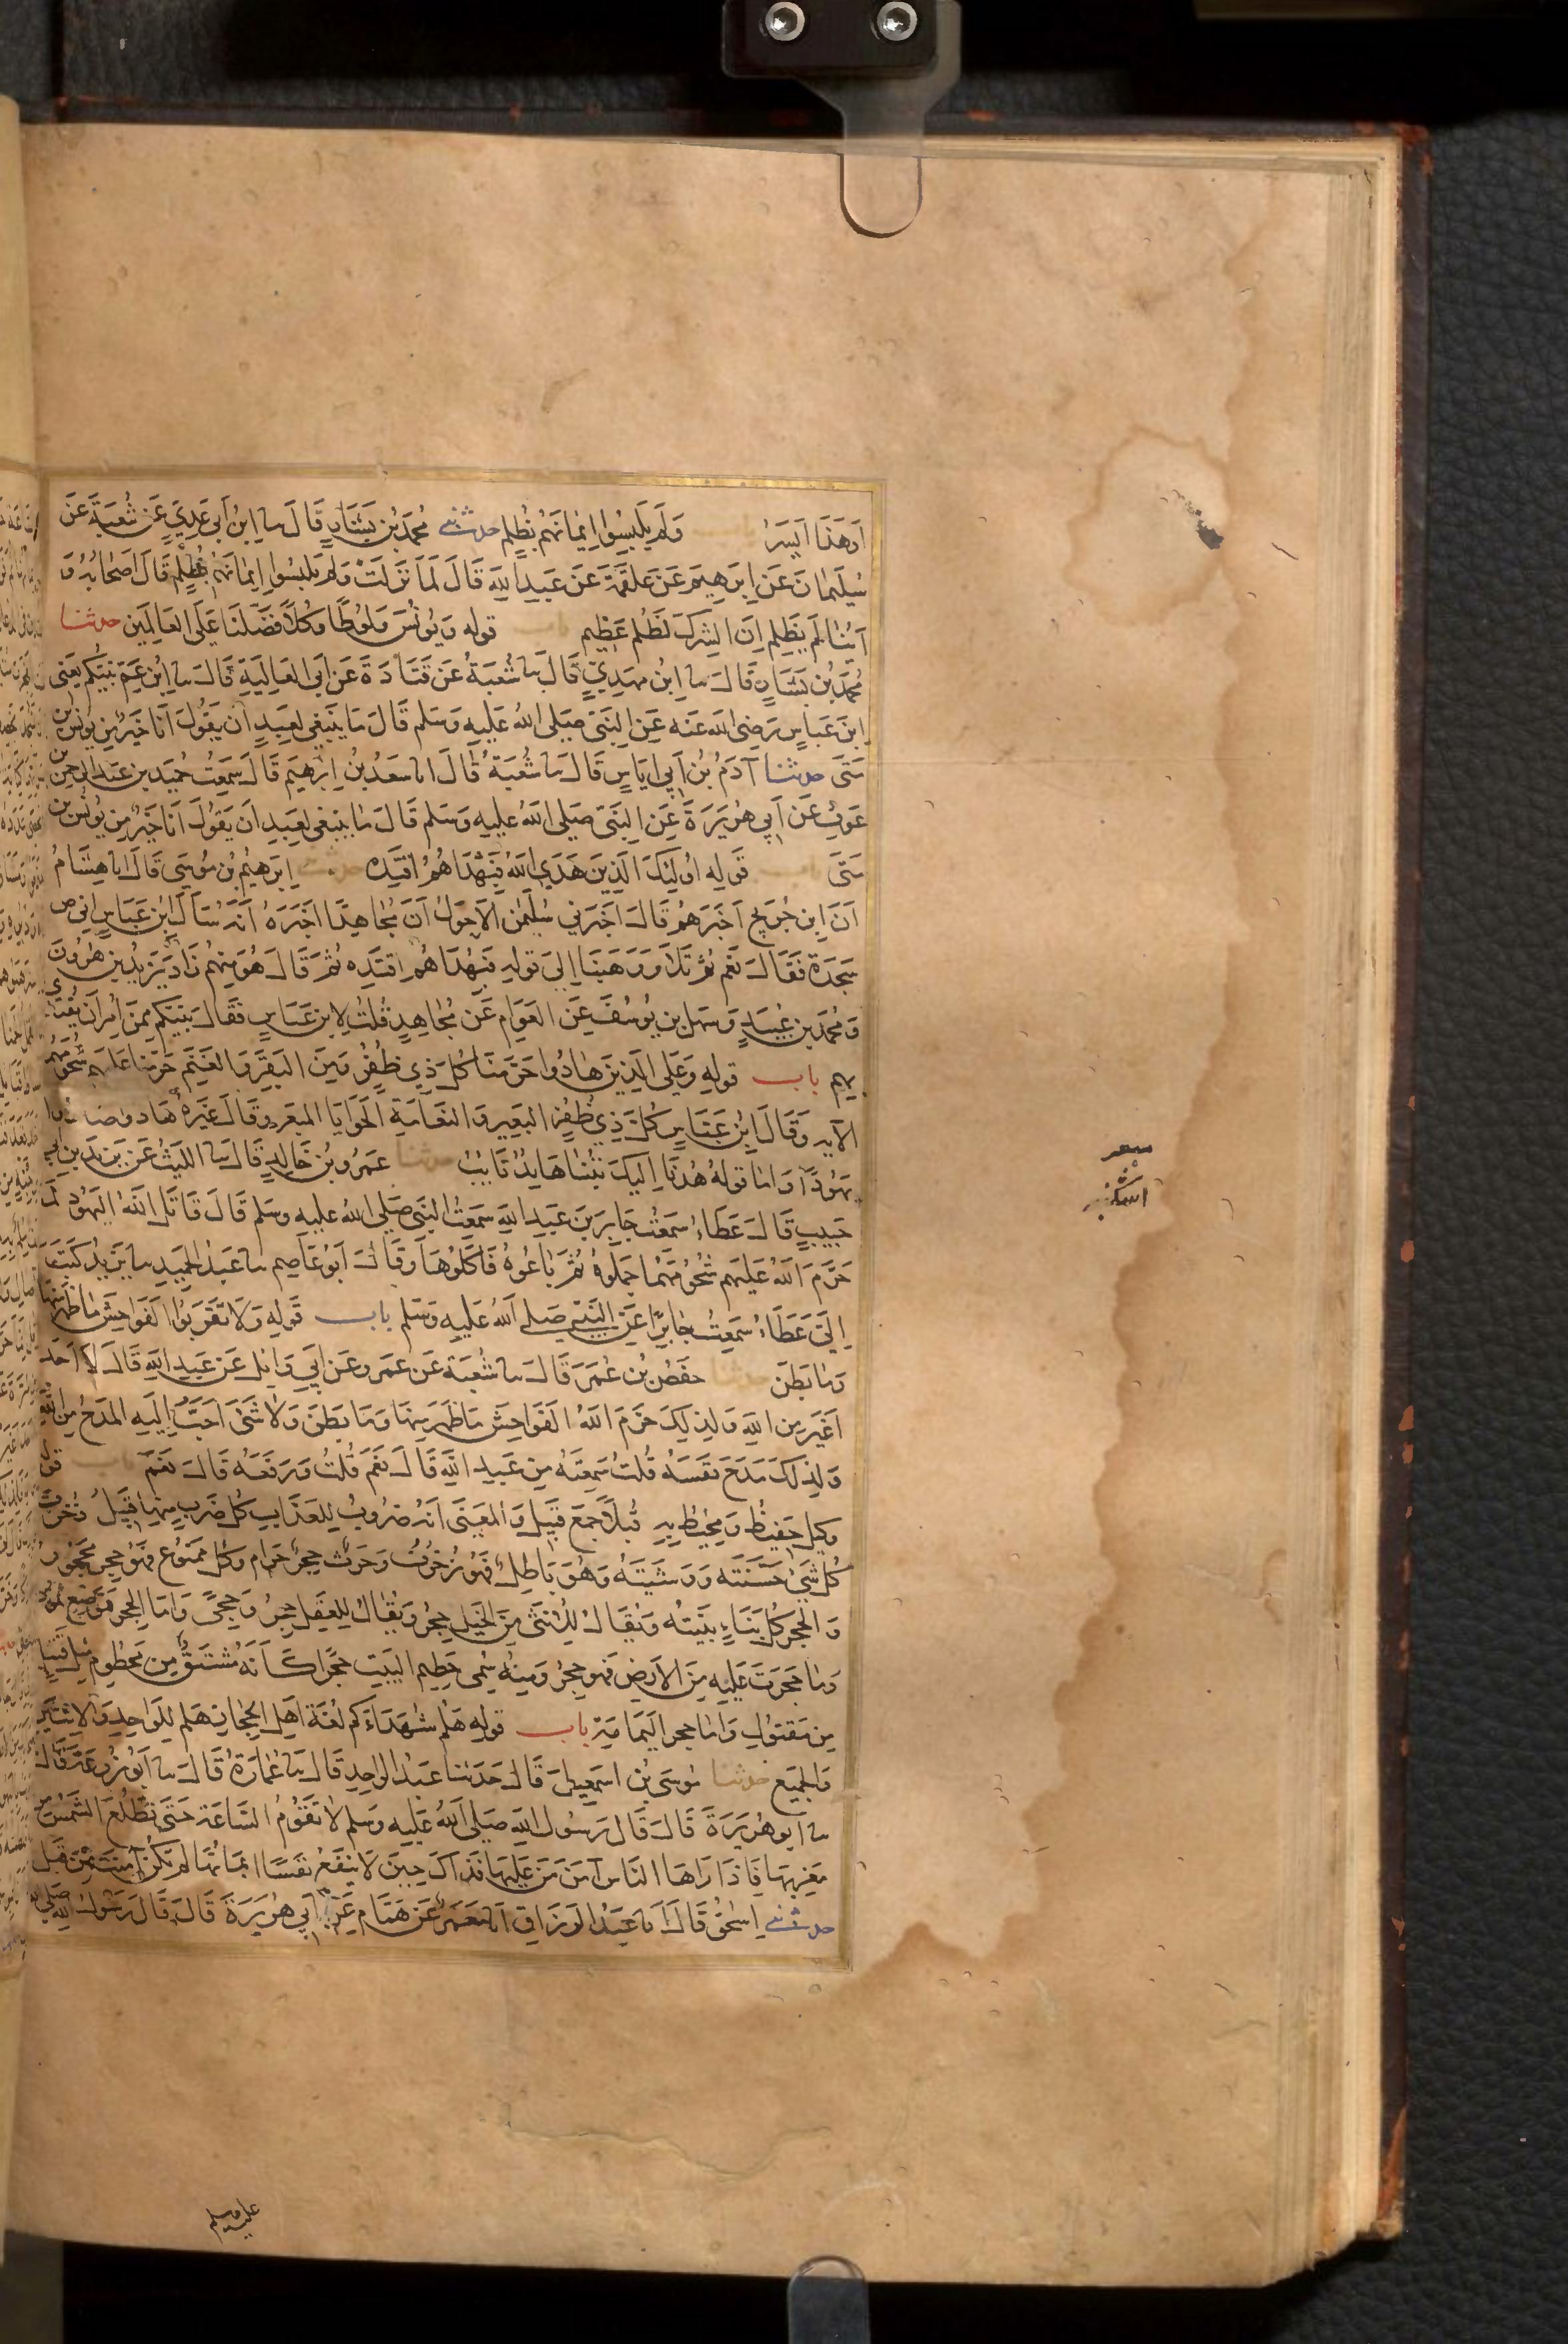 او هذا ايسر باب ولم يلبسوا ايمانهم بظلم حدثني محمد بن بشار قال سا ابن ابي عدي عن شعبة عن
سليمان عن ابرهيم عن علقمة عن عبد الله قال لما نزلت ولم يلبسوا ايمانهم بظلم قال اصحابه و
اينا لم يظلم ان الشرك لظلم عظيم باب قوله ويونس ولوطا وكلا فضلنا على العالمين حدثنا
محمد بن بشار قال سا ابن مهدي قال سا شعبة عن قتادة عن ابي العالية قال سا ابن عم نبيكم يعني
ابن عباس رضى الله عنه عن النبي صلى الله عليه وسلم قال ما ينبغي لعبد ان يقول انا خير من يونس بن
متى حدثنا آدم بن ابي اياس قال سا شعبة قال انا سعد بن ابرهيم قال سمعت حميد بن عبد الرحمن بن
عوف عن ابي هريرة عن النبي صلى الله عليه وسلم قال ما ينبغي لعبد ان يقول انا خير من يونس بن
متى باب قوله اولئك الذين هدى الله فبهداهم اقتده حدثنا ابرهيم بن موسى قال انا هشام
ان ابن جريج اخبرهم قال اخبرني سليمن الاحول ان مجاهدا اخبره انه سأل ابن عباس افي ص
سجدة فقال نعم ثم تلا ووهبنا الى قوله فبهداهم اقتده ثم قال هو منهم زاد يزيد بن هرون
ومحمد بن عبيد وسهل بن يوسف عن العوام عن مجاهد قلت لابن عباس فقال نبيكم ممن امر ان يقتدي
بهم باب قوله وعلى الذين هادوا حرمنا كل ذي ظفر ومن البقر والغنم حرمنا عليهم شحومهما
الآيه وقال ابن عباس كل ذي ظفر البعير والنعامة الحوايا المبعر وقال غيره هادوا صاروا
يهودا واما قوله هدنا اليك تبنا هايد تايب حدثنا عمرو بن خالد قال سا الليث عن يزيد بن ابي
حبيب قال عطاء سمعت جابر بن عبد الله سمعت النبي صلى الله عليه وسلم قال قاتل الله اليهود لما
حرم الله عليهم شحومهما جملوه ثم باعوه فاكلوها وقال ابو عاصم سا عبد الحميد سا يزيد كتب
الي عطاء سمعت جابرا عن النبي صلى الله عليه وسلم باب قوله ولا تقربوا الفواحش ما ظهر منها
وما بطن حدثنا حفص بن عمر قال سا شعبة عن عمرو عن ابي وايل عن عبد الله قال لا احد
اغير من الله ولذلك حرم الله الفواحش ما ظهر منها وما بطن ولا شئ احب اليه المدح من الله
ولذلك مدح نفسه قلت سمعته من عبد الله قال نعم قلت ورفعه قال نعم باب قوله
وكيل حفيظ ومحيط به قبلا جمع قبيل والمعنى انه ضروب للعذاب كل ضرب منها قبيل زخرف
كل شئ حسنته ووشيته وهو باطل فهو زخرف وحرث حجر حرام وكل ممنوع فهو حجر محجور
والحجر كل بناء بنيته ويقال للانثى من الخيل حجر ويقال للعقل حجر وحجى واما الحجر فموضع ثمود
وما حجرت عليه من الارض فهو حجر ومنه سمى حطيم البيت حجرا كأنه مشتق من محطوم مثل قتيل
من مقتول واما حجر اليمامة باب قوله هلم شهداءكم لغة اهل الحجاز هلم للواحد والاثنين
والجميع حدثنا موسى بن اسمعيل قال حدثنا عبد الواحد قال سا عمارة قال سا ابو زرعة قال
سا ابو هريرة قال قال رسول الله صلى الله عليه وسلم لا تقوم الساعة حتى تطلع الشمس من
مغربها فاذا راها الناس آمن من عليها فذاك حين لا ينفع نفسا ايمانها لم تكن آمنت من قبل
حدثني اسحق قال انا عبد الرزاق انا معمر عن همام عن ابي هريرة قال قال رسول الله صلى الله
عليه وسلم